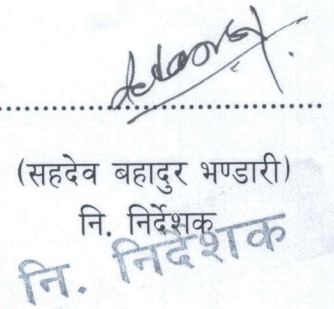 (सहदेव बहादुर भण्डारी)
नि. निर्देशक
नि. निर्देशक